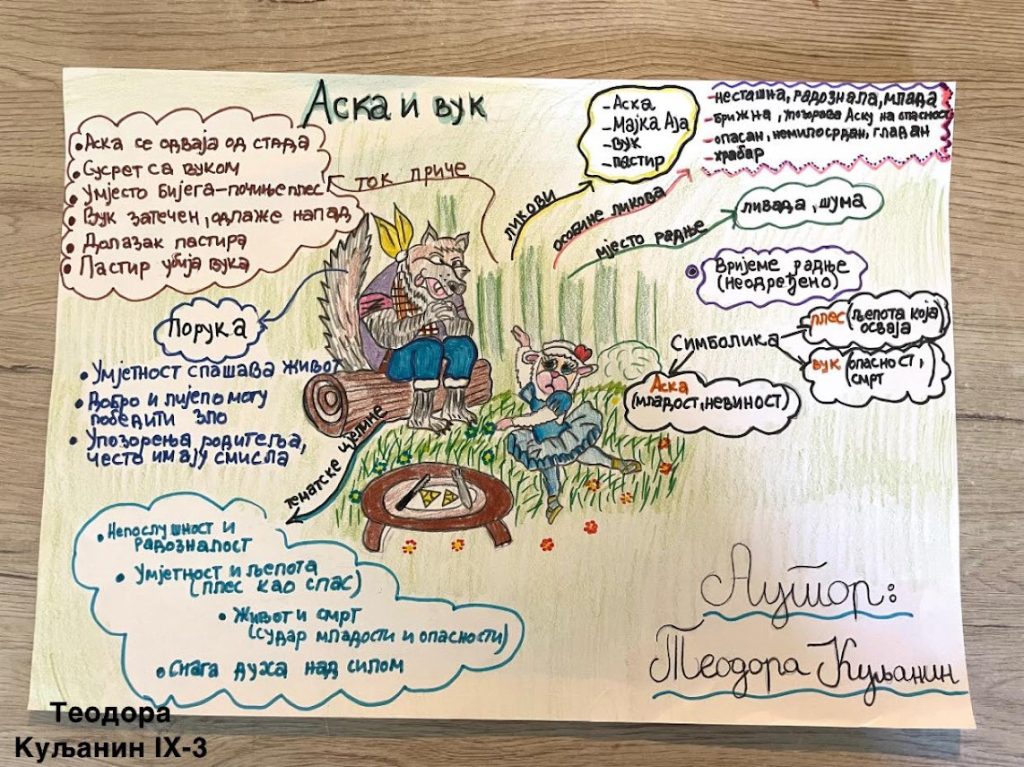 Аска и вук
• Аска се одваја од стада
• Сусрет са вуком
• Умјесто бијега - почиње плес
• Вук затечен, одлаже напад
• Долазак пастира
• Пастир убија вука
ток приче
ликови
- Аска
- Мајка Аја
- Вук
- пастир
особине ликова
- несташна, радознала, млада
- брижна, упозорава Аску на опасност
- опасан, немилосрдан, гладан
- храбар
мјесто радње
ливада, шума
Вријеме радње
(неодређено)
Симболика
плес (љепота која
осваја)
вук (опасност,
смрт)
Аска
(младост, невиност)
Порука
• Умјетност спашава живот
• Добро и лијепо могу
победити зло
• Упозорења родитеља,
често имају смисла
тематске цјелине
• Непослушност и
радозналост
• Умјетност и љепота
(плес као спас)
• Живот и смрт
(судар младости и опасности)
• Снага духа над силом
Аутор:
Теодора Куљанин
Теодора
Куљанин IX-3